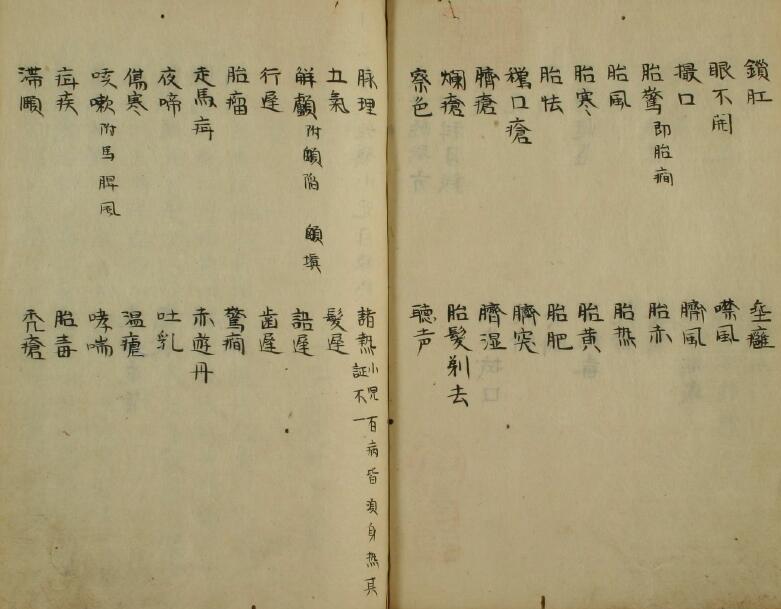 鎖肛 垂癰
眼不開 噤風
撮口 臍風
胎驚 即胎癇 胎赤
胎風 胎热
胎寒 胎黄
胎怯 胎肥
鵞口瘡 臍突
臍瘡 臍湿
爛瘡 胎髮剃去
察色 聴声
脉理 諸热 小児百病皆須身热其証不一
五氣 髮遲
解顱 附顖陷 顖塡 語遲
行遲 歯遲
胎瘤 驚癇
走馬疳 赤遊丹
夜啼 吐乳
傷寒 温瘧
咳嗽 附馬脾風 哮喘
疳疾 胎毒
滯頤 禿瘡